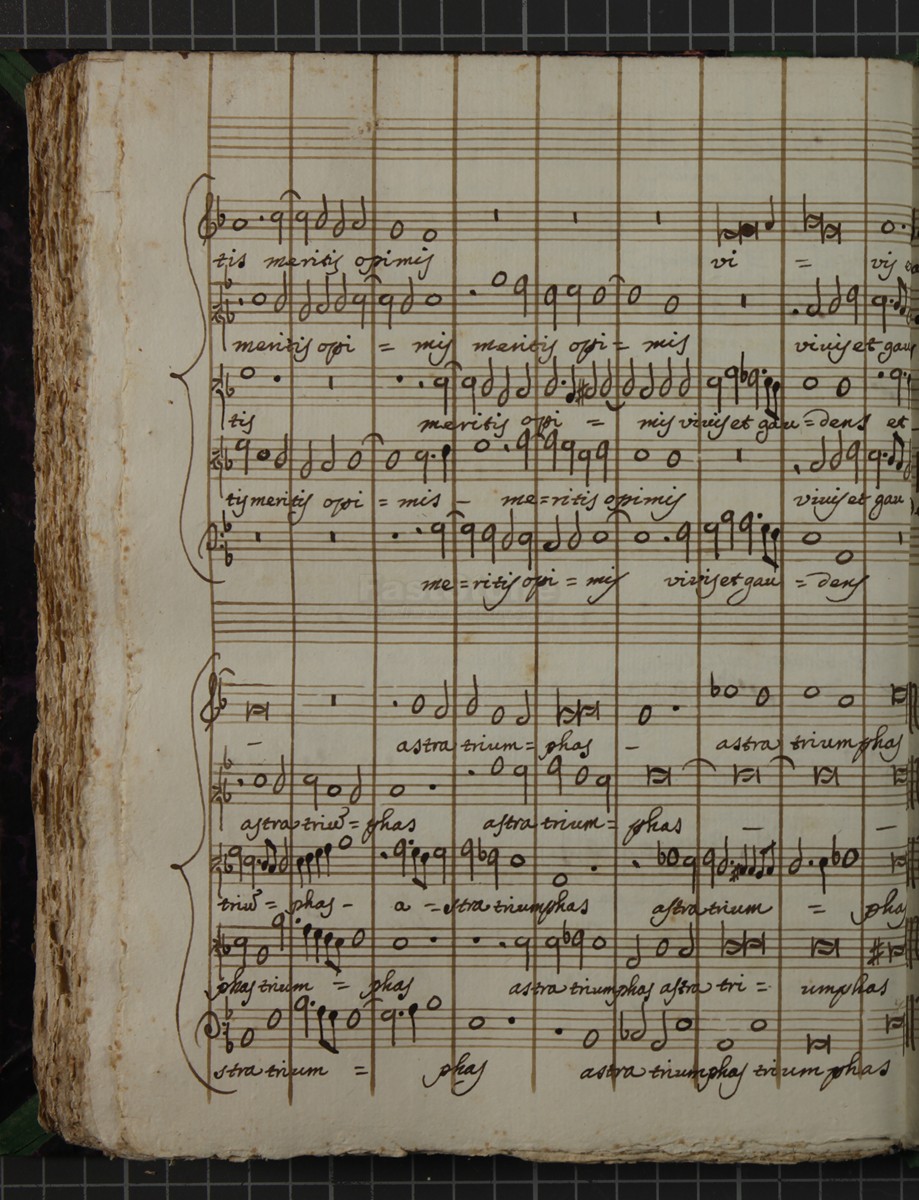 tis meritis opimis vi = vis
meritis opi = mis meritis opi = mis vivis et gau
tis meritis opi = mis vivis et gau = dens et
tis meritis opi = mis - me = ritis opimis vivis et gau
me = ritis opi = mis vivis et gau = dens
- astra trium = phas - astra triumphas
astra triũ = phas astra trium = phas - -
triũ = phas - a = stra triumphas astra trium = phas
phas trium = phas astra triumphas astra tri = umphas
stra trium = phas astra triumphas triumphas